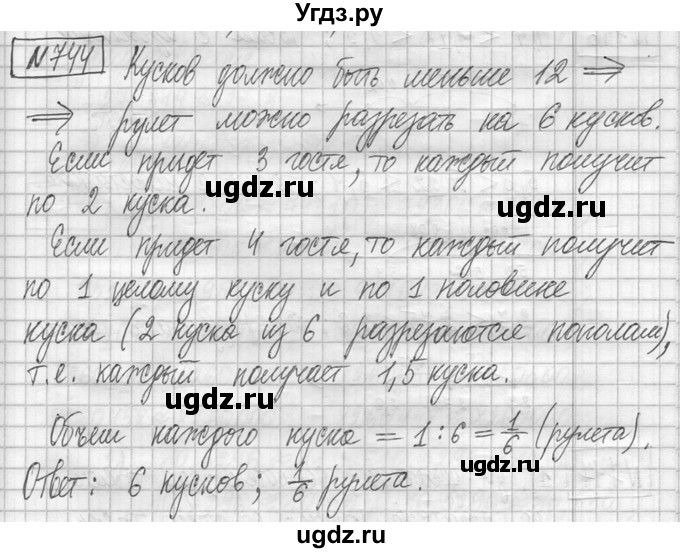 Угдз.ру
№744 Кусков должно быть меньше 12 ⇒
⇒ рулет можно разрезать на 6 кусков.
Если придет 3 гостя, то каждый получит
ugdz.ru
по 2 куска.
ugdz.ru
Если придет 4 гостя, то каждый получит
по 1 целому куску и по 1 половине
куска (2 куска из 6 разрезаются пополам),
т.е. каждый получает 1,5 куска.
ugdz.ru
Объем каждого куска = 1 : 6 = 1/6 (рулета).
ugdz.ru
Ответ: 6 кусков; 1/6 рулета.
ugdz.ru